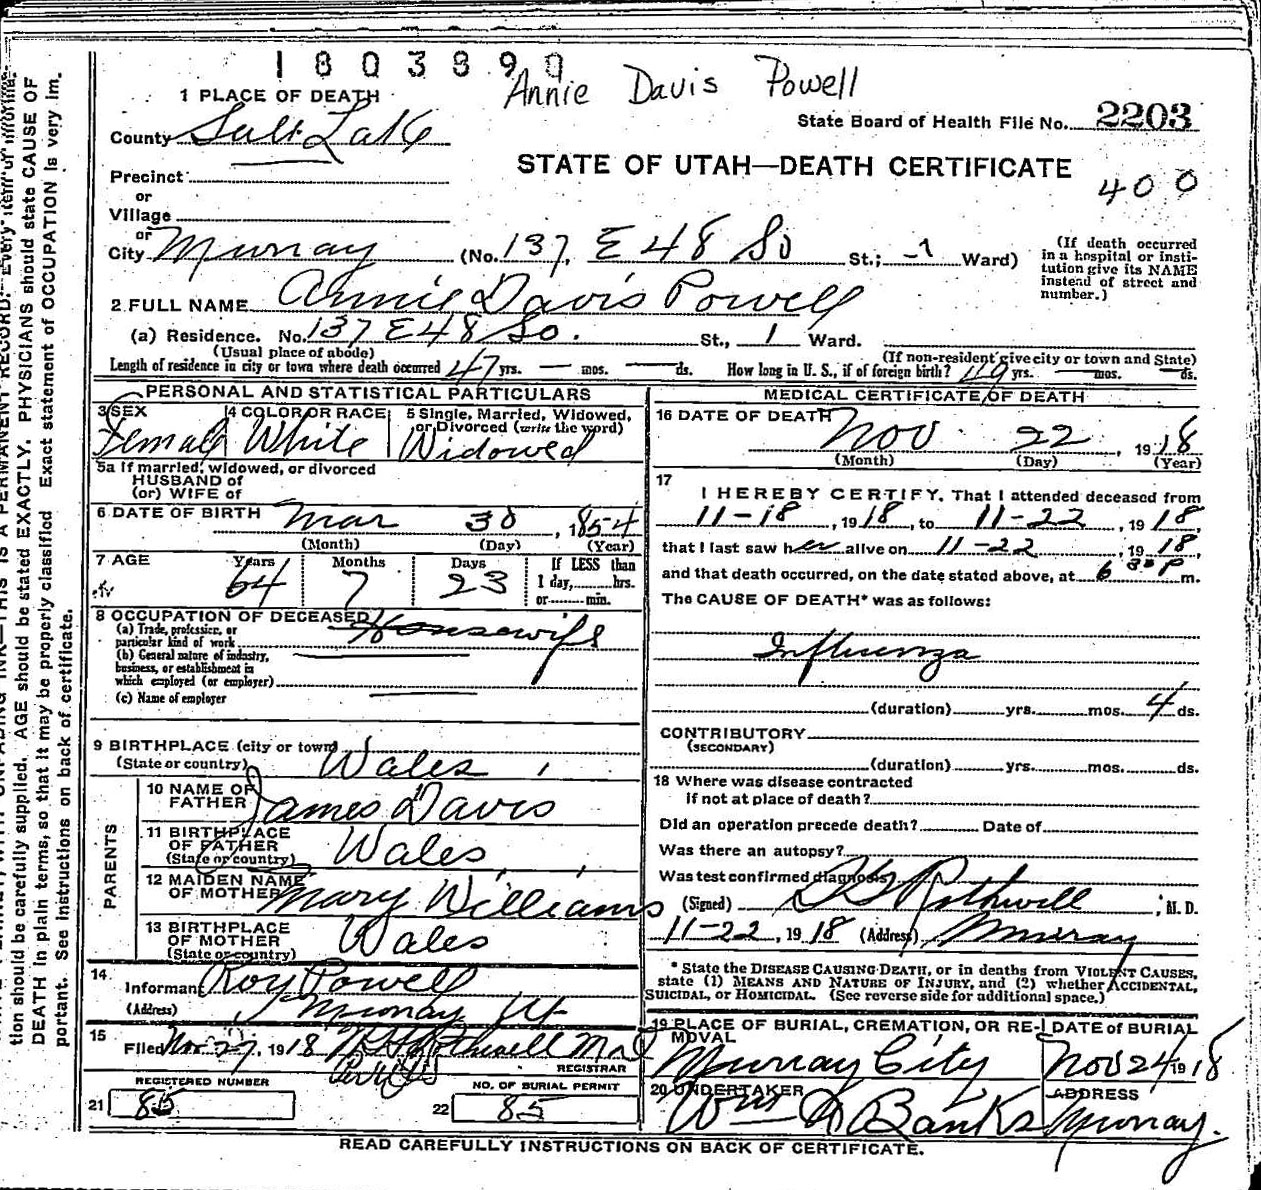 1803890
Annie Davis Powell
1 PLACE OF DEATH
State Board of Health File No. 2203
County Salt Lake
STATE OF UTAH—DEATH CERTIFICATE
400
Precinct
or
Village
or
City Murray (No. 137, E 48 So St.; 1 Ward)
(If death occurred in a hospital or insti-
tution give its NAME
instead of street and
number.)
2 FULL NAME Annie Davis Powell
(a) Residence. No. 137 E 48 So. St., 1 Ward.
(Usual place of abode)
(If non-resident give city or town and State)
Length of residence in city or town where death occurred 47 yrs. — mos. — ds. How long in U. S., if of foreign birth? 49 yrs. — mos. — ds.
PERSONAL AND STATISTICAL PARTICULARS
3 SEX
Female
4 COLOR OR RACE
White
5 Single, Married, Widowed,
or Divorced (write the word)
Widowed
5a If married, widowed, or divorced
HUSBAND of
(or) WIFE of
6 DATE OF BIRTH Mar 30, 1854
(Month) (Day) (Year)
7 AGE Years Months Days If LESS than
64 7 23 1 day, hrs.
or min.
8 OCCUPATION OF DECEASED
(a) Trade, profession, or
particular kind of work Housewife
(b) General nature of industry,
business, or establishment in
which employed (or employer)
(c) Name of employer
9 BIRTHPLACE (city or town)
(State or country) Wales
PARENTS
10 NAME OF
FATHER James Davis
11 BIRTHPLACE
OF FATHER
(State or country) Wales
12 MAIDEN NAME
OF MOTHER Mary Williams
13 BIRTHPLACE
OF MOTHER
(State or country) Wales
14
Informant Roy Powell
(Address) Murray Ut
15
Filed Nov 27, 1918 Rothwell
REGISTRAR
REGISTERED NUMBER
21 85
NO. OF BURIAL PERMIT
22 85
MEDICAL CERTIFICATE OF DEATH
16 DATE OF DEATH Nov 22, 1918
(Month) (Day) (Year)
17
I HEREBY CERTIFY, That I attended deceased from
11-18, 1918, to 11-22, 1918,
that I last saw her alive on 11-22, 1918,
and that death occurred, on the date stated above, at 6 30 P m.
The CAUSE OF DEATH* was as follows:
Influenza
(duration) yrs. mos. 4 ds.
CONTRIBUTORY
(SECONDARY)
(duration) yrs. mos. ds.
18 Where was disease contracted
if not at place of death?
Did an operation precede death? Date of
Was there an autopsy?
Was test confirmed diagnosis
(Signed) Rothwell, M. D.
11-22, 1918 (Address) Murray
* State the DISEASE CAUSING DEATH, or in deaths from VIOLENT CAUSES,
state (1) MEANS AND NATURE OF INJURY, and (2) whether ACCIDENTAL,
SUICIDAL, or HOMICIDAL. (See reverse side for additional space.)
19 PLACE OF BURIAL, CREMATION, OR RE-
MOVAL
Murray City
DATE of BURIAL
Nov 24 1918
20 UNDERTAKER
Wm A Banks
ADDRESS
Murray.
READ CAREFULLY INSTRUCTIONS ON BACK OF CERTIFICATE.
tion should be carefully supplied. AGE should be stated EXACTLY. PHYSICIANS should state CAUSE OF
DEATH in plain terms, so that it may be properly classified Exact statement of OCCUPATION is very im-
portant. See Instructions on back of certificate.